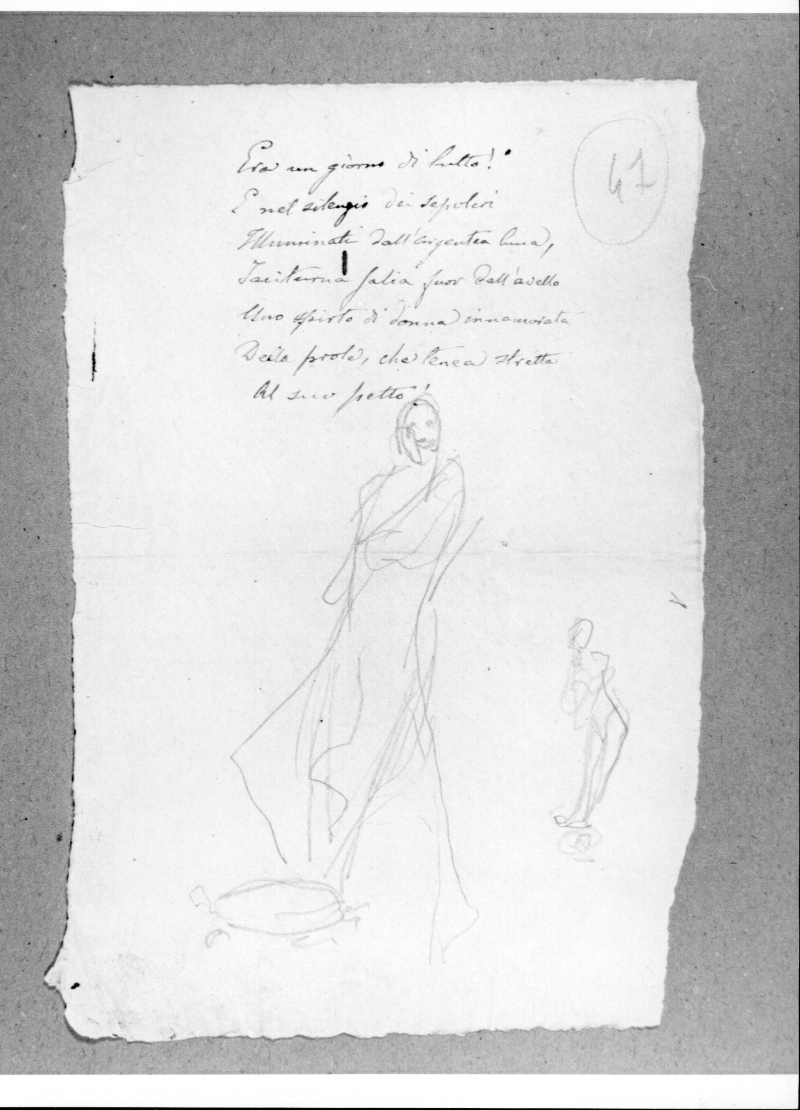 Era un giorno di lutto!
E nel silenzio dei sepolcri
Illuminati dall'argentea luna,
Taciturna salia fuor dall'avello
Uno spirto di donna innamorata
Della prole, che tenea stretta
Al suo petto!
47